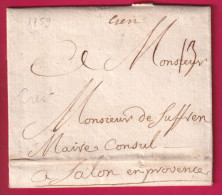 1759
A Monsieur
Monsieur de Suffren
Maire Consul
a Salon en provence